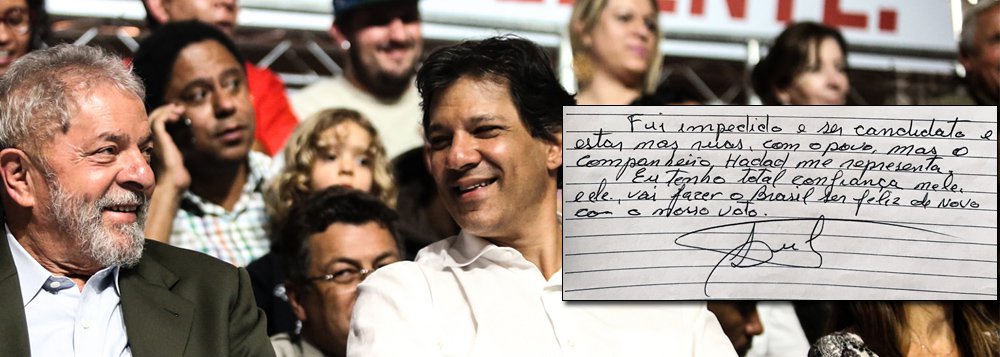 ENTE.
Fui impedido e ser candidato e
estar nas ruas, com o povo, mas o
companheiro Hadad me representa.
Eu tenho total confiança nele,
ele, vai fazer o Brasil ser feliz de novo
com o nosso voto.
Lul